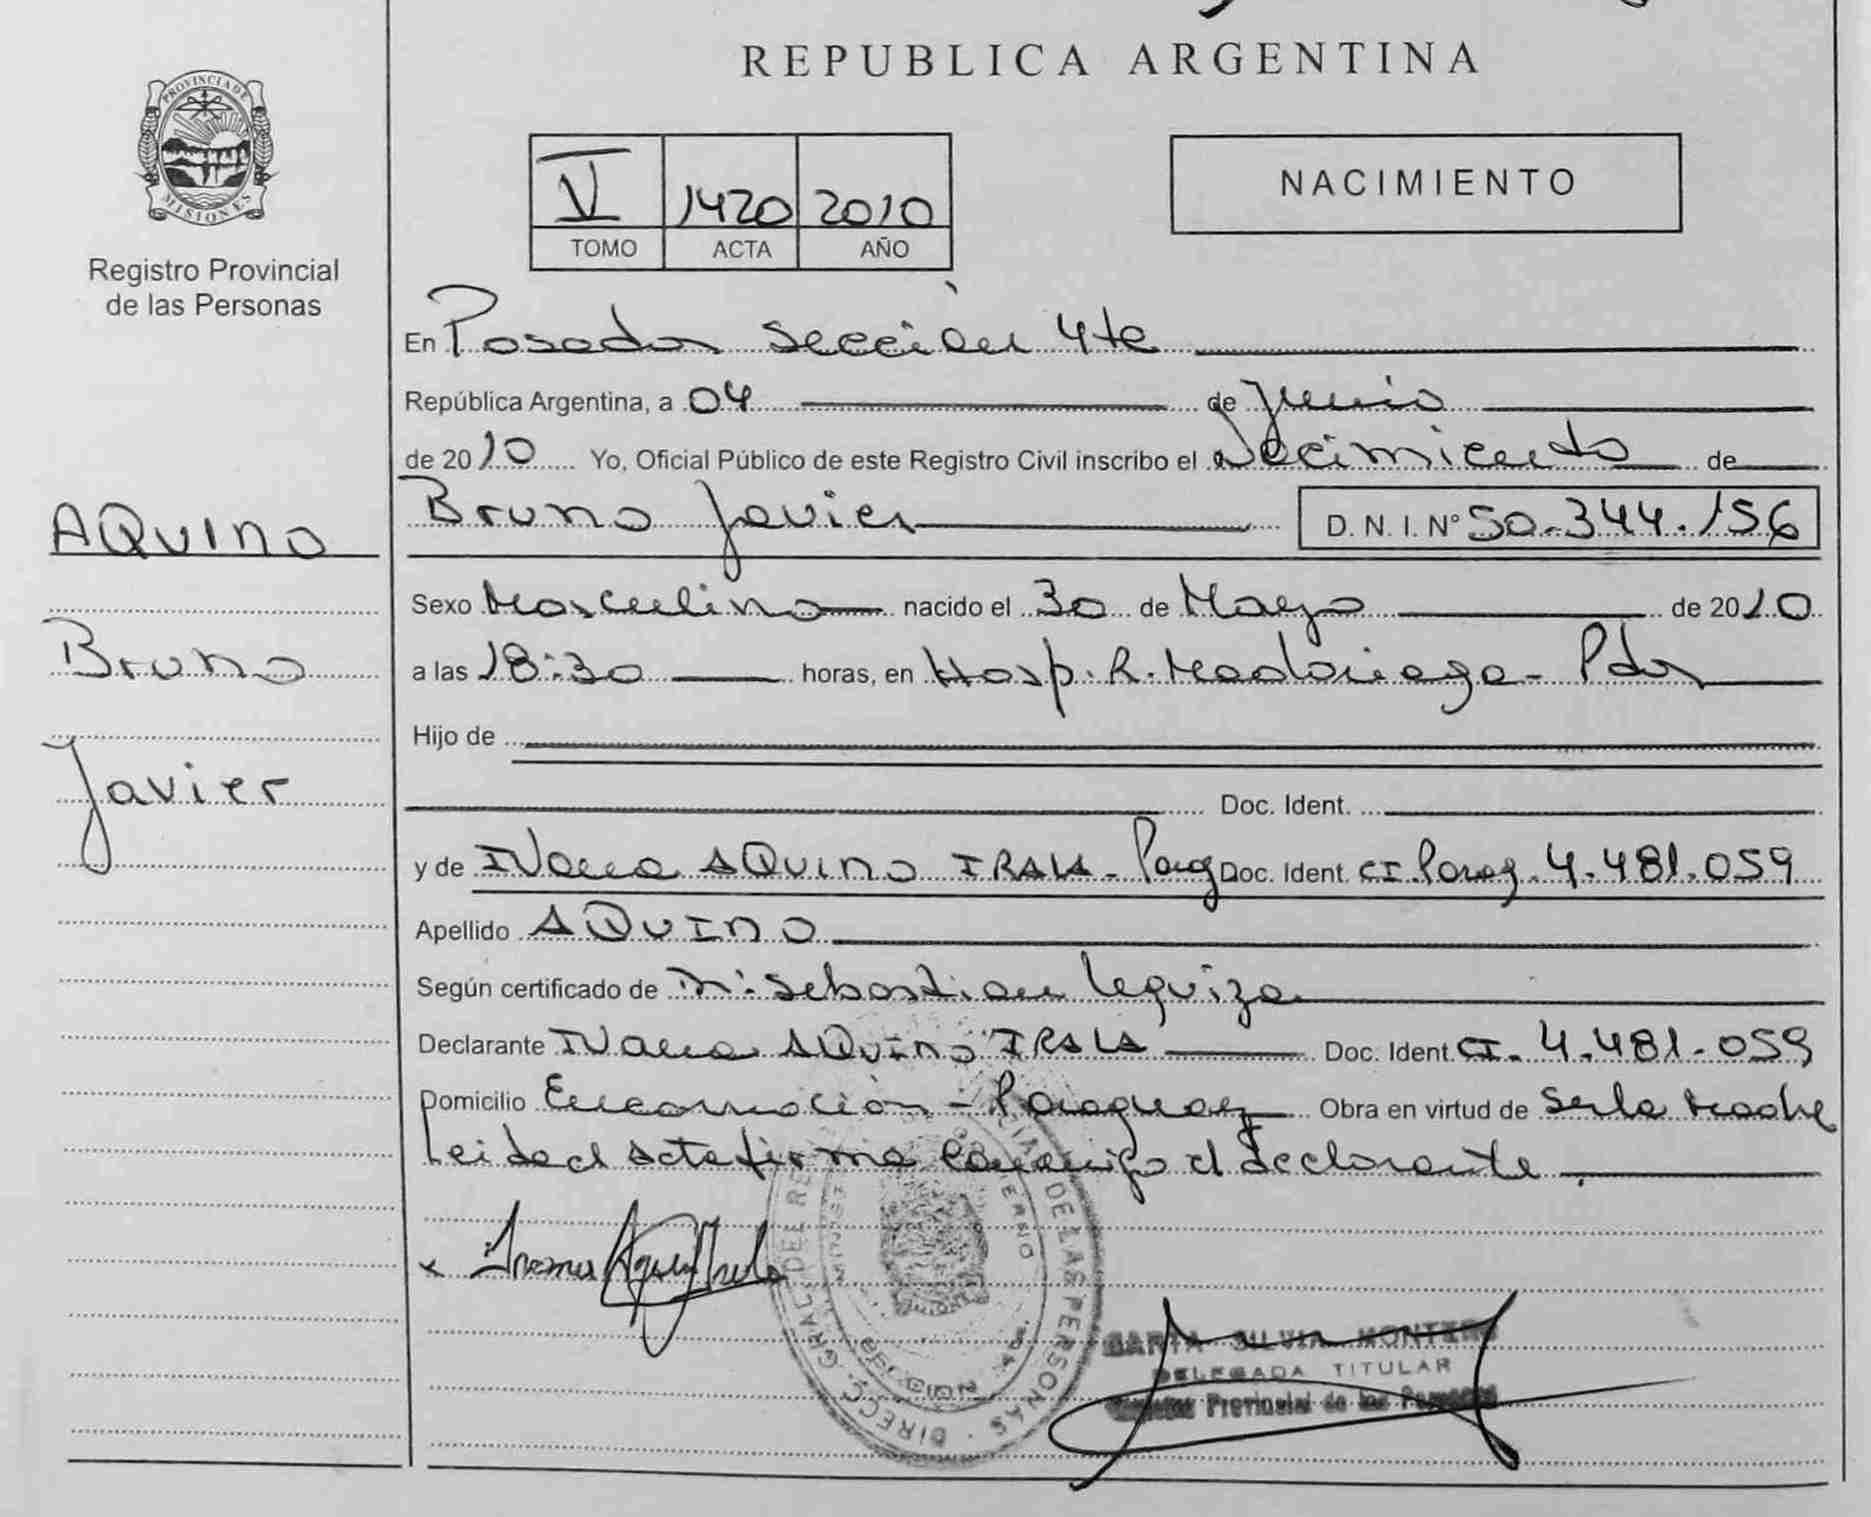 REPUBLICA ARGENTINA
PROVINCIA DE MISIONES
Registro Provincial
de las Personas
V 1420 2010
TOMO ACTA AÑO
NACIMIENTO
AQUINO
Bruno
Javier
En Posadas Sección 4ta
República Argentina, a 04 de Junio
de 2010 Yo, Oficial Público de este Registro Civil inscribo el Nacimiento de
Bruno Javier D. N. I. N° 50.344.156
Sexo Masculino nacido el 30 de Mayo de 2010
a las 18:30 horas, en Hosp. R. Madariaga - Pdas
Hijo de
Doc. Ident.
y de IVana AQUINO IRALA - Parag Doc. Ident. CI. Parag. 4.481.059
Apellido AQUINO
Según certificado de Sebastian Leguiza
Declarante IVana AQUINO IRALA Doc. Ident. CI. 4.481.059
Domicilio Encarnación - Paraguay Obra en virtud de Ser la Madre
Leida el Acta firma conmigo el declarante.
x Aquino Irala
DIRECC. GRAL. DE DE LAS PERSONAS
SILVIA MONTERO
DELEGADA TITULAR
Provincial de las Personas